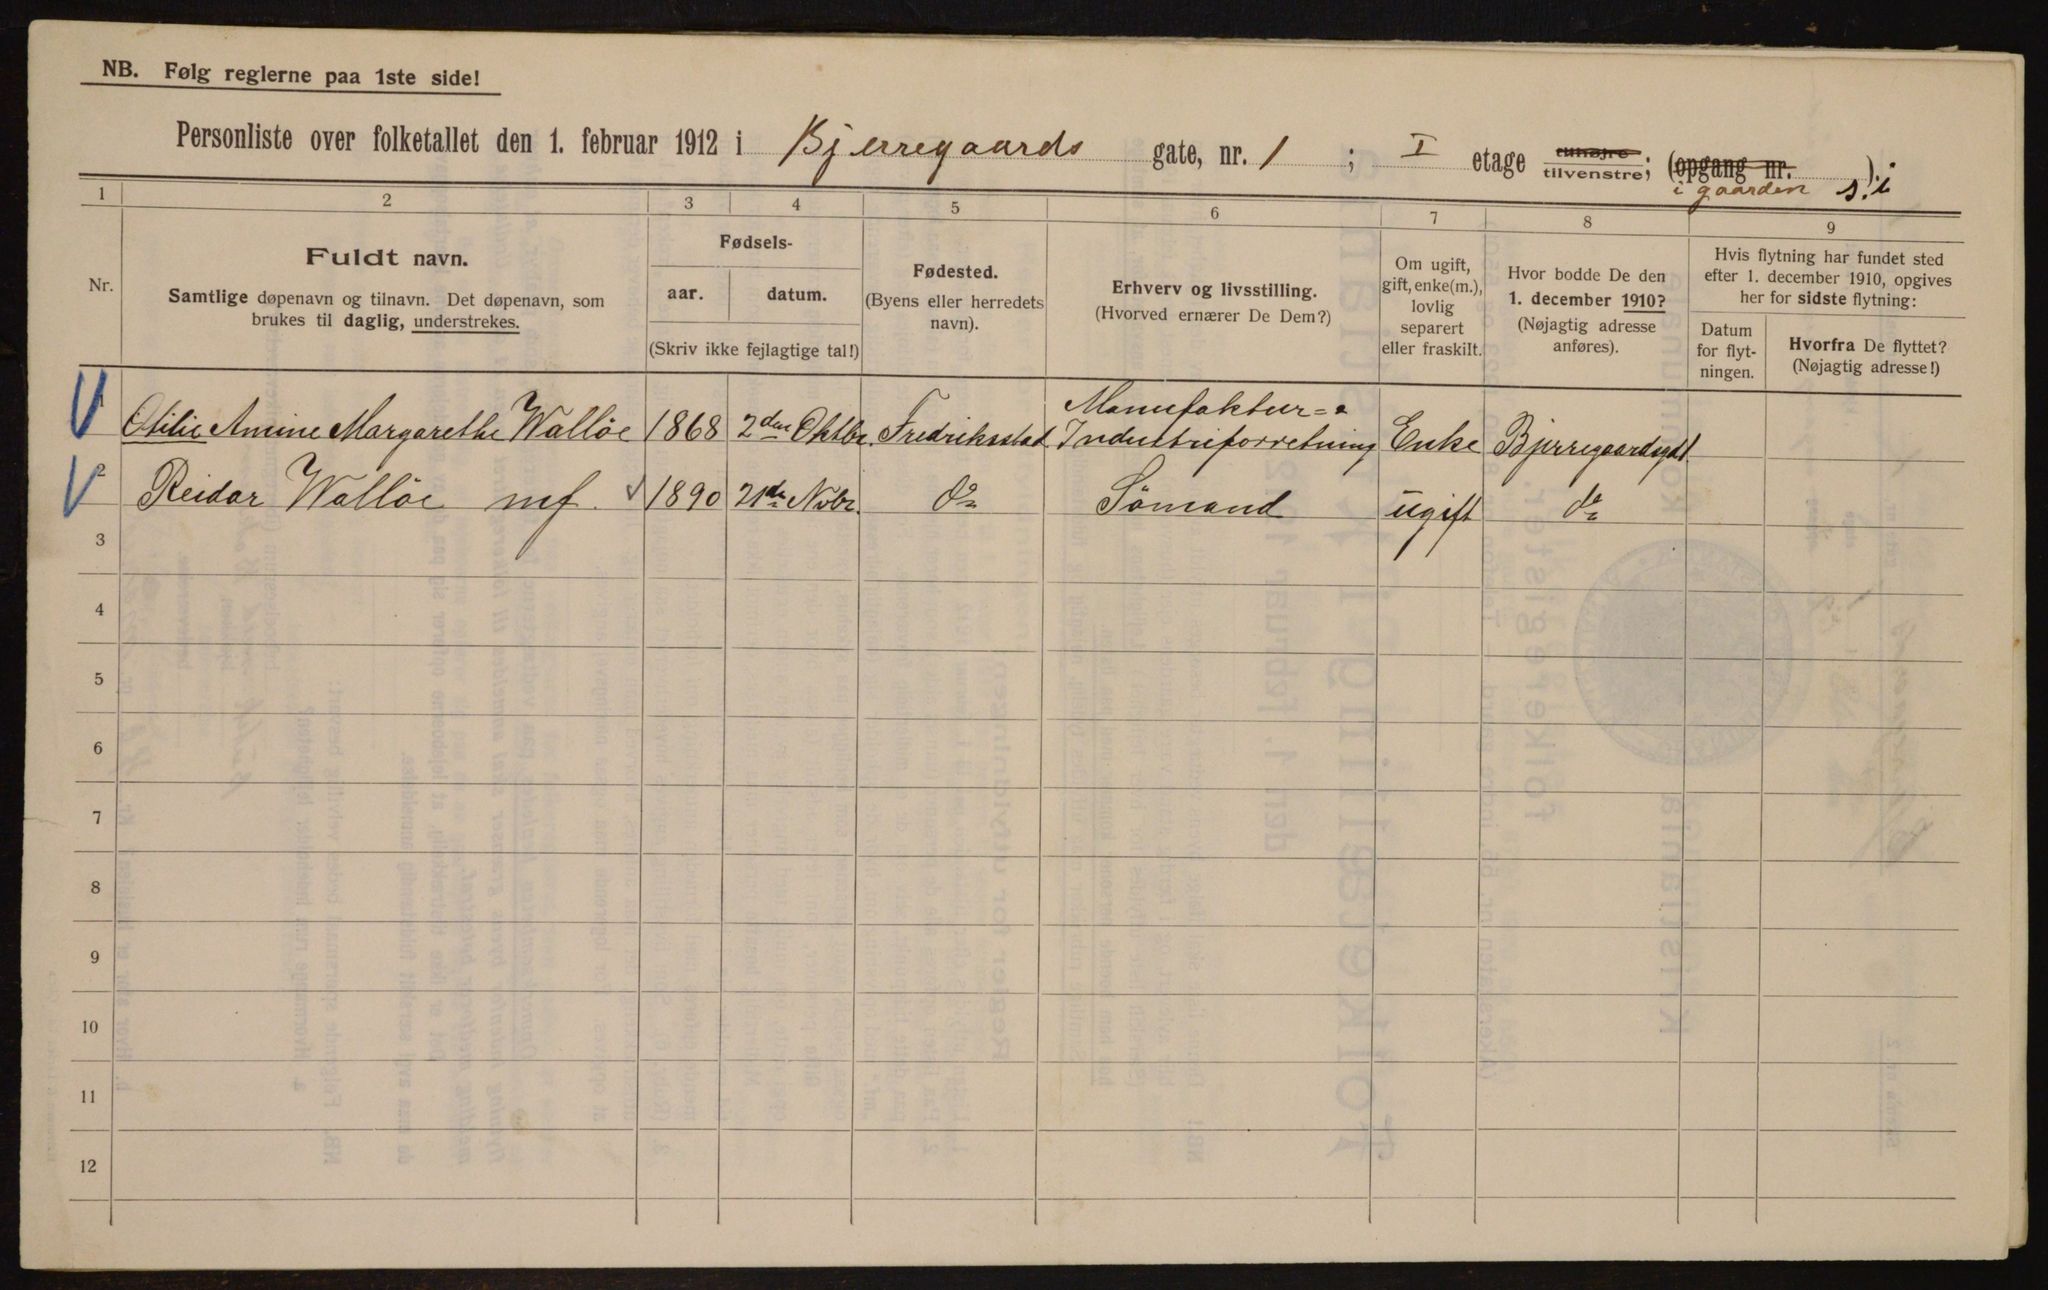 NB. Følg reglerne paa 1ste side!
Personliste over folketallet den 1. februar 1912 i Bjerregaards gate, nr. 1 ; I etage tilhøjre tilvenstre; (opgang nr. ):
i gaarden
1 2 3 4 5 6 7 8 9
Nr.
Fuldt navn.
Samtlige døpenavn og tilnavn. Det døpenavn, som
brukes til daglig, understrekes.
Fødsels-
aar.
datum.
(Skriv ikke fejlagtige tal!)
Fødested.
(Byens eller herredets
navn).
Erhverv og livsstilling.
(Hvorved ernærer De Dem?)
Om ugift,
gift, enke(m.),
lovlig
separert
eller fraskilt.
Hvor bodde De den
1. december 1910?
(Nøjagtig adresse
anføres).
Hvis flytning har fundet sted
efter 1. december 1910, opgives
her for sidste flytning:
Datum
for flyt-
ningen.
Hvorfra De flyttet?
(Nøjagtig adresse!)
1 Otilie Amine Margarethe Walløe 1868 2den Oktbr. Fredriksstad Manufaktur=
Industriforretning Enke Bjerregaardsgd 1
2 Reidar Walløe mf. 1890 21de Nvbr. do Sömand ugift do
3
4
5
6
7
8
9
10
11
12